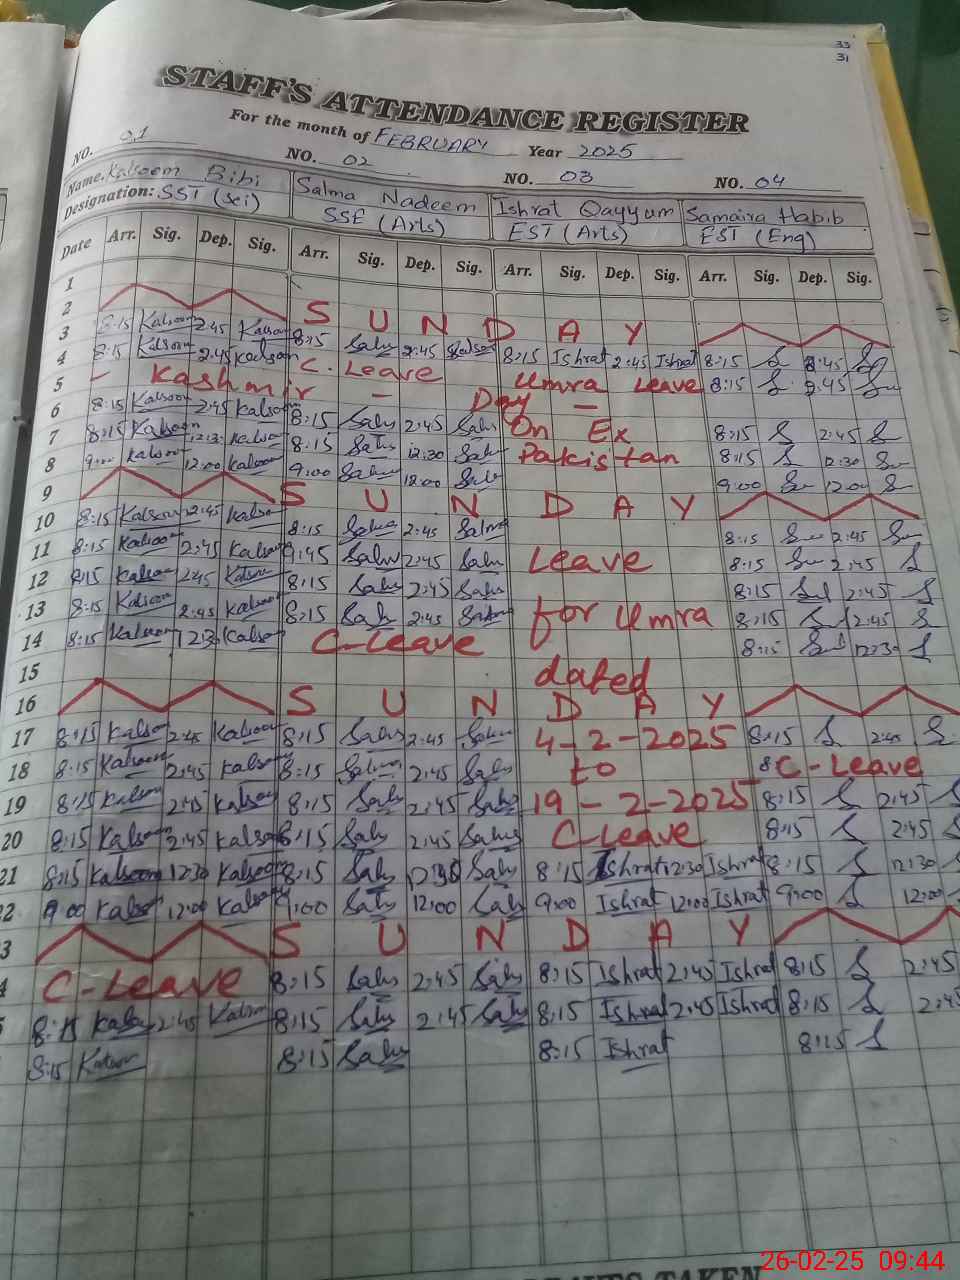 33
31
STAFF'S ATTENDANCE REGISTER
For the month of FEBRUARY Year 2025
NO. 01 NO. 02 NO. 03 NO. 04
Name. Kalsoom Bibi Salma Nadeem Ishrat Qayyum Samaira Habib
Designation: SST (sci) SSE (Arts) EST (Arts) EST (Eng)
Date Arr. Sig. Dep. Sig. Arr. Sig. Dep. Sig. Arr. Sig. Dep. Sig. Arr. Sig. Dep. Sig.
1
2 SUNDAY
3 8:15 Kalsoom 2:45 Kalsoom 8:15 Salu 2:45 8:15 Ishrat 2:45 Ishrat 8:15 2:45
4 8:15 Kalsoom 2:45 Kalsoom C. Leave Umra Leave 8:15 2:45
5 - Kashmir - Day -
6 8:15 Kalsoom 2:45 Kalsoom 8:15 Salu 2:45 Salu On Ex 8:15 2:45
7 8:15 Kalsoom Kalsoom 8:15 Salu 12:30 Salu Pakistan 8:15 12:30
8 9:00 Kalsoom 12:00 Kalsoom 9:00 Salu 12:00 Salu 9:00 12:00
9 SUNDAY
10 8:15 Kalsoom 2:45 Kalsoom 8:15 Salu 2:45 Salma 8:15 2:45
11 8:15 Kalsoom 2:45 Kalsoom Salu 2:45 Salu Leave 8:15 2:45
12 8:15 Kalsoom 2:45 Kalsoom 8:15 Salu 2:45 Salu 8:15 2:45
13 8:15 Kalsoom 2:45 Kalsoom 8:15 Salu 2:45 Salu for Umra 8:15 2:45
14 8:15 Kalsoom 12:30 Kalsoom C-Leave 8:15 12:30
15 dated
16 SUNDAY
17 8:15 Kalsoom 2:45 Kalsoom 8:15 Salu 2:45 Salu 4-2-2025 8:15 2:45
18 8:15 Kalsoom 2:45 Kalsoom 8:15 Salma 2:45 Salu to 8 C-Leave
19 8:15 Kalsoom 2:45 Kalsoom 8:15 Salu 2:45 Salu 19-2-2025 8:15 2:45
20 8:15 Kalsoom 2:45 Kalsoom 8:15 Salu 2:45 Salu C-Leave 8:15 2:45
21 8:15 Kalsoom 12:30 Kalsoom 8:15 Salu 12:30 Salu 8:15 Ishrat 12:30 Ishrat 8:15 12:30
22 9:00 Kalsoom 12:00 Kalsoom 9:00 Salu 12:00 Salu 9:00 Ishrat 12:00 Ishrat 9:00 12:00
3 SUNDAY
4 C-Leave 8:15 Salu 2:45 Salu 8:15 Ishrat 2:45 Ishrat 8:15 2:45
5 8:15 Kalsoom 2:45 Kalsoom 8:15 Salu 2:45 Salu 8:15 Ishrat 2:45 Ishrat 8:15 2:45
8:15 Kalsoom 8:15 Salu 8:15 Ishrat 8:15
26-02-25 09:44